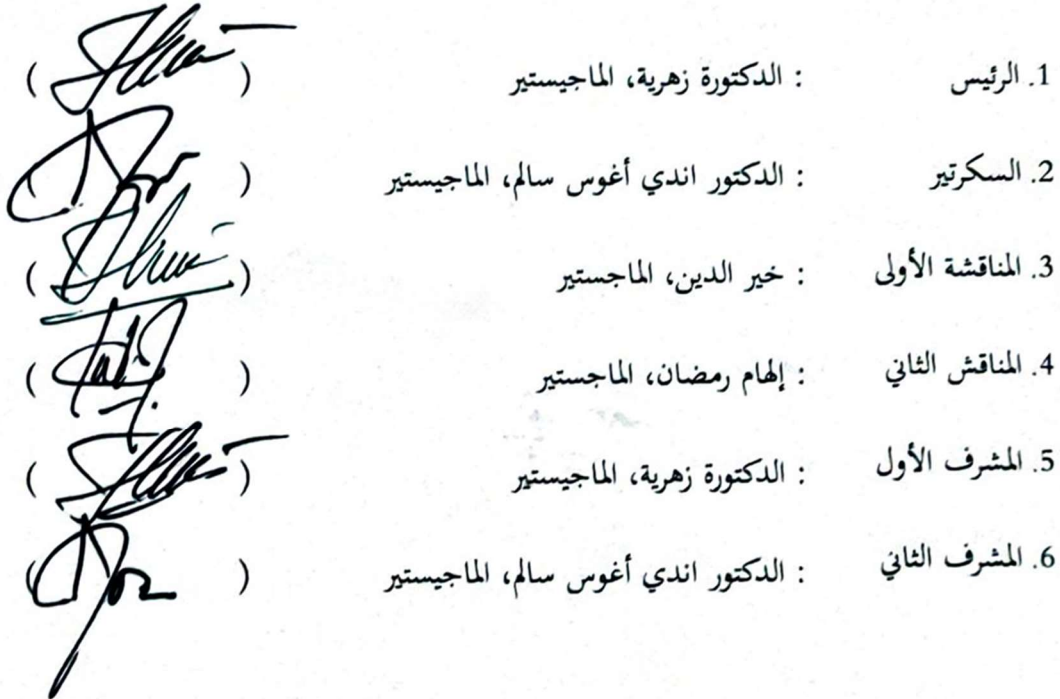 1. الرئيس : الدكتورة زهرية، الماجيستير ( )
2. السكرتير : الدكتور اندي أغوس سالم، الماجيستير ( )
3. المناقشة الأولى : خير الدين، الماجستير ( )
4. المناقش الثاني : إلهام رمضان، الماجستير ( )
5. المشرف الأول : الدكتورة زهرية، الماجيستير ( )
6. المشرف الثاني : الدكتور اندي أغوس سالم، الماجيستير ( )